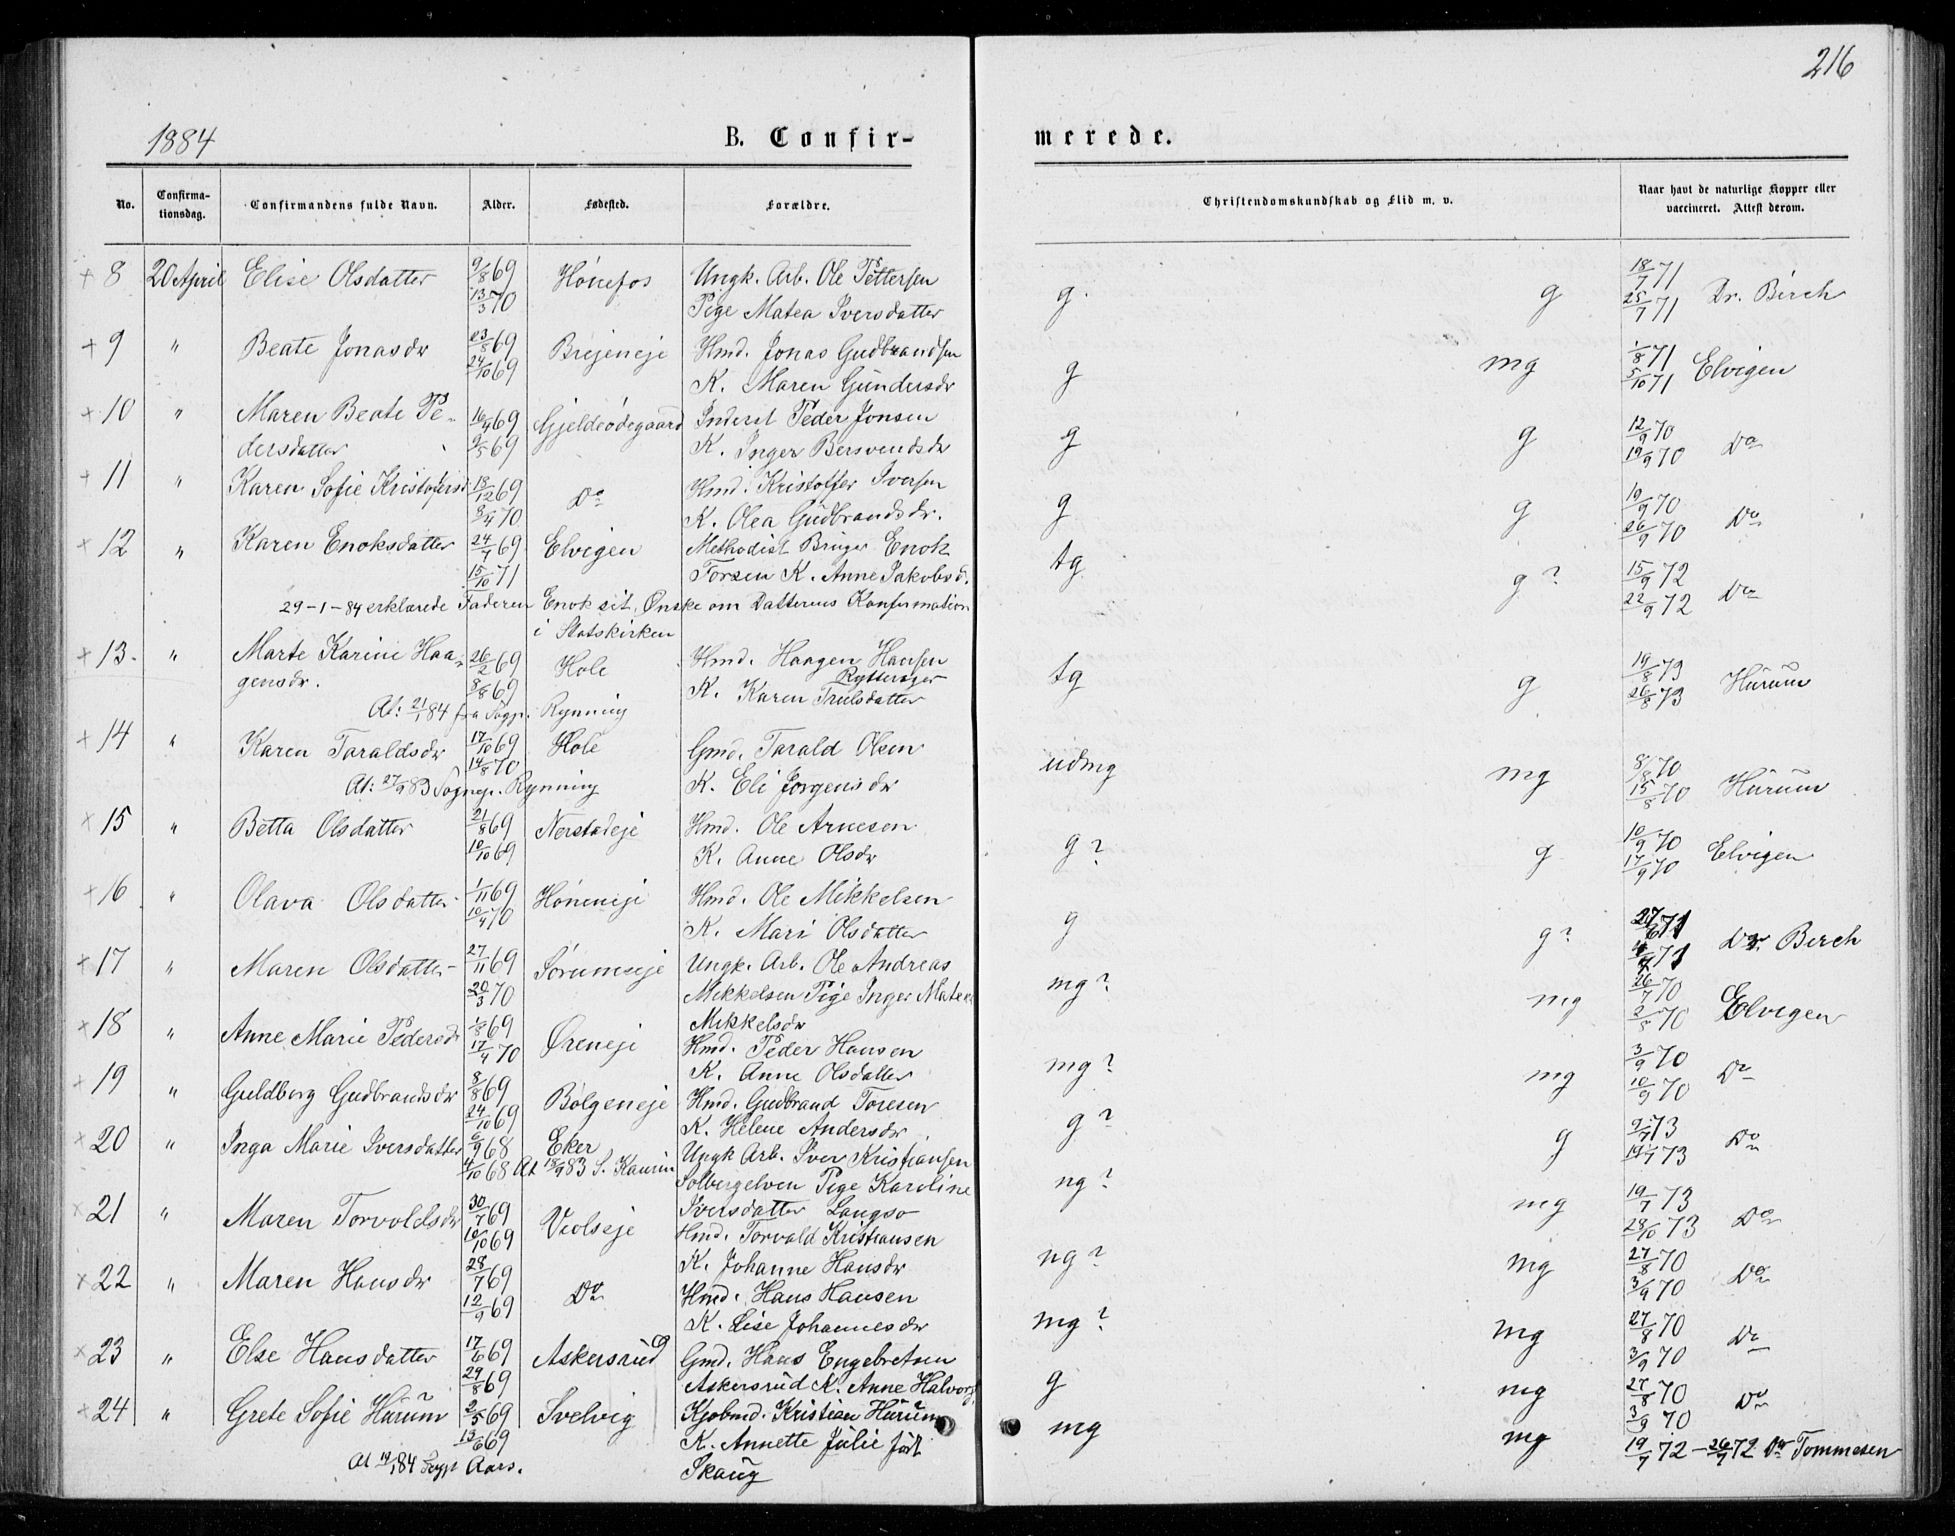 216
1884
B. Confir-
merede.
No.
Confirma-
tionsdag.
Confirmandens fulde Navn.
Alder.
Fødested.
Forældre.
Christendomskundskab og Flid m. v.
Naar havt de naturlige Kopper eller
vaccineret. Attest derom.
+ 8 20 April Elise Olsdatter 9/8 69 Hönefos Ungk. Arb. Ole Pettersen g. g 18/7 71 Dr. Birch
13/3 70 Pige Matea Iversdatter 25/7 71
+ 9 " Beate Jonasdr 23/8 69 Brejeneje Hmd. Jonas Gudbrandsen g mg 1/8 71 Elvigen
24/10 69 K. Maren Gundersdr 5/10 71
+ 10 " Maren Beate Pe- 16/4 69 Gjeldeødegaard Inderst Peder Jonsen g g 12/9 70 Do
dersdatter 9/5 69 K. Inger Bersvendsdr 19/9 70
+ 11 " Karen Sofie Kristofersd 18/12 69 Do Hmd. Kristoffer Iversen g g 19/9 70 Do
3/4 70 K. Olea Gudbrandsdr. 26/9 70
+ 12 " Karen Enoksdatter 24/7 69 Elvigen Methodist Bruger Enok tg g? 15/9 72 Do
15/10 71 Torsen K. Anne Jakobsd. 22/9 72
29-1-84 erklærede Faderen Enok sit Ønske om Datterens Konfirmation
i Statskirken
+ 13. " Marte Karine Haa- 26/2 69 Hole Hmd. Haagen Hansen tg g 19/8 73 Hurum
Rytterager
gensdr. 8/8 69 K. Karen Trulsdatter 26/8 73
At: 21/1 84 fra Sogp. Rynning
+ 14 " Karen Taraldsdr 17/10 69 Hole Gmd. Tarald Olsen udmg mg 8/8 70 Hurum
14/8 70 K. Eli Jorgensdr 15/8 70
At: 27/9 83 Sognep. Rynning
× 15 " Betta Olsdatter 21/8 69 Nerstadeje Hmd. Ole Arneson g? g 10/9 70 Elvigen
10/10 69 K. Anne Olsdr 17/9 70
+ 16 " Olava Olsdatter 1/11 69 Höneneje Hmd. Ole Mikkelsen g g? 27/6 71 Dr. Birch
10/4 70 K. Mari Olsdatter 4/7 71
+ 17 " Maren Olsdatter 27/11 69 Sörumseje Ungk. Arb. Ole Andreas mg? mg 26/7 70 Elvigen
20/3 70 Mikkelsen Pige Inger Matea 2/8 70
Mikkelsdr
× 18 " Anne Marie Pedersdr 1/8 69 Øreneje Hmd. Peder Hansen mg? mg 3/9 70 Do
17/4 70 K. Anne Olsdatter 10/9 70
+ 19 " Guldborg Gudbrandsdr 8/8 69 Bölgeneje Hmd. Gudbrand Toresen g? g 9/7 73 Do
24/10 69 K. Helene Andersdr 19/7 73
× 20 " Inga Marie Iversdatter 6/9 68 Eker Ungk Arb. Iver Kristiansen ng? mg 19/7 73 Do
4/10 68 At 18/9 83 S. Kaurin Solbergelven Pige Karoline 28/10 73
Iversdatter Langsö
× 21 " Maren Torvoldsdr 30/7 69 Veolseje Hmd. Torvald Kristiansen ng? mg 27/8 70 Do
10/10 69 K. Johanne Hansdr 3/9 70
× 22 " Maren Hansdr 28/7 69 Do Hmd. Hans Hansen mg? mg 27/8 70 Do
12/9 69 K. Lise Johannesdr 3/9 70
× 23 " Else Hansdatter 17/6 69 Askersrud Gmd. Hans Engebretsen g mg 27/8 70 Do
29/8 69 Askersrud K. Anne Halvorsd. 3/9 70
× 24 " Grete Sofie Hurum 2/5 69 Svelvig Kjobmd. Kristian Hurum mg mg 19/7 72 - 26/7 72 Dr Tommesen
13/6 69 K. Annette Julie födt
At 19/1 84 Sogp Aars. Skaug